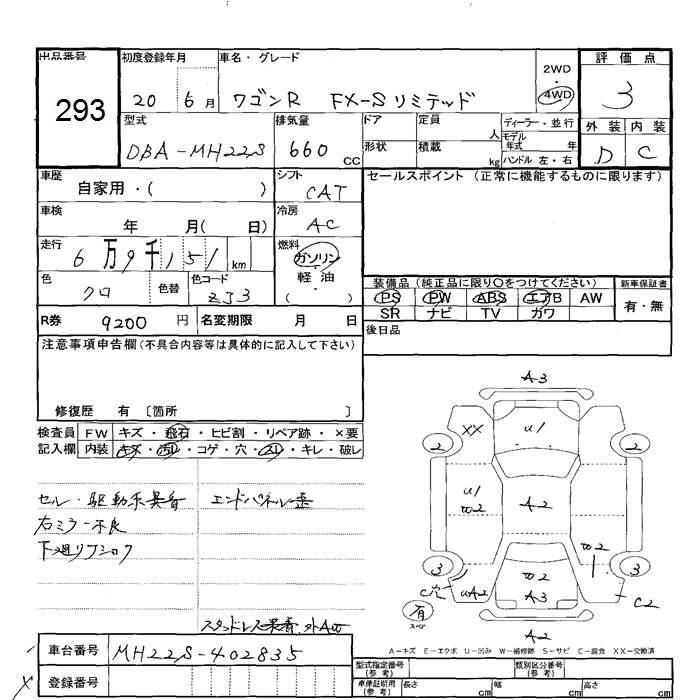 出品番号 初度登録年月 車名・グレード 2WD 評価点
293 20 6月 ワゴンR FX-Sリミテッド 4WD 3
型式 排気量 ドア 定員 人 ディーラー・並行 外装 内装
DBA-MH22S 660 CC 形状 積載 kg モデル年式 年 D C
ハンドル 左・右
車歴 自家用・( ) シフト CAT セールスポイント (正常に機能するものに限ります)
車検 年 月( 日) 冷房 AC
走行 6万9千151 km 燃料 ガソリン
色 クロ 色替 色コード ZJ3 軽油 ( )
装備品 (純正品に限り○をつけてください) 新車保証書
PS PW ABS エアB AW 有・無
SR ナビ TV ガワ
R券 9200 円 名変期限 月 日 後日品
注意事項申告欄 (不具合内容等は具体的に記入して下さい)
修復歴 有 〔箇所 〕
検査員 FW キズ・飛石・ヒビ割・リペア跡・×要
記入欄 内装 キズ・汚レ・コゲ・穴・スレ・キレ・破レ
セル・駆動系異音 エンドパネル歪
右ミラー不良
下廻りフショク
スタッドレス装着、外AW
A-3
XX U1
2 2
U1 W2 A2
W2
3 W2 A3 3
C穴 UA2 C2
有 スペア
A2
A-キズ E-エクボ U-凹み W-補修跡 S-サビ C-腐食 XX-交換済
車台番号 MH22S-402835
登録番号
型式指定番号 (参考) 類別区分番号 (参考)
車庫証明用 (参考) 長さ cm 幅 cm 高さ cm